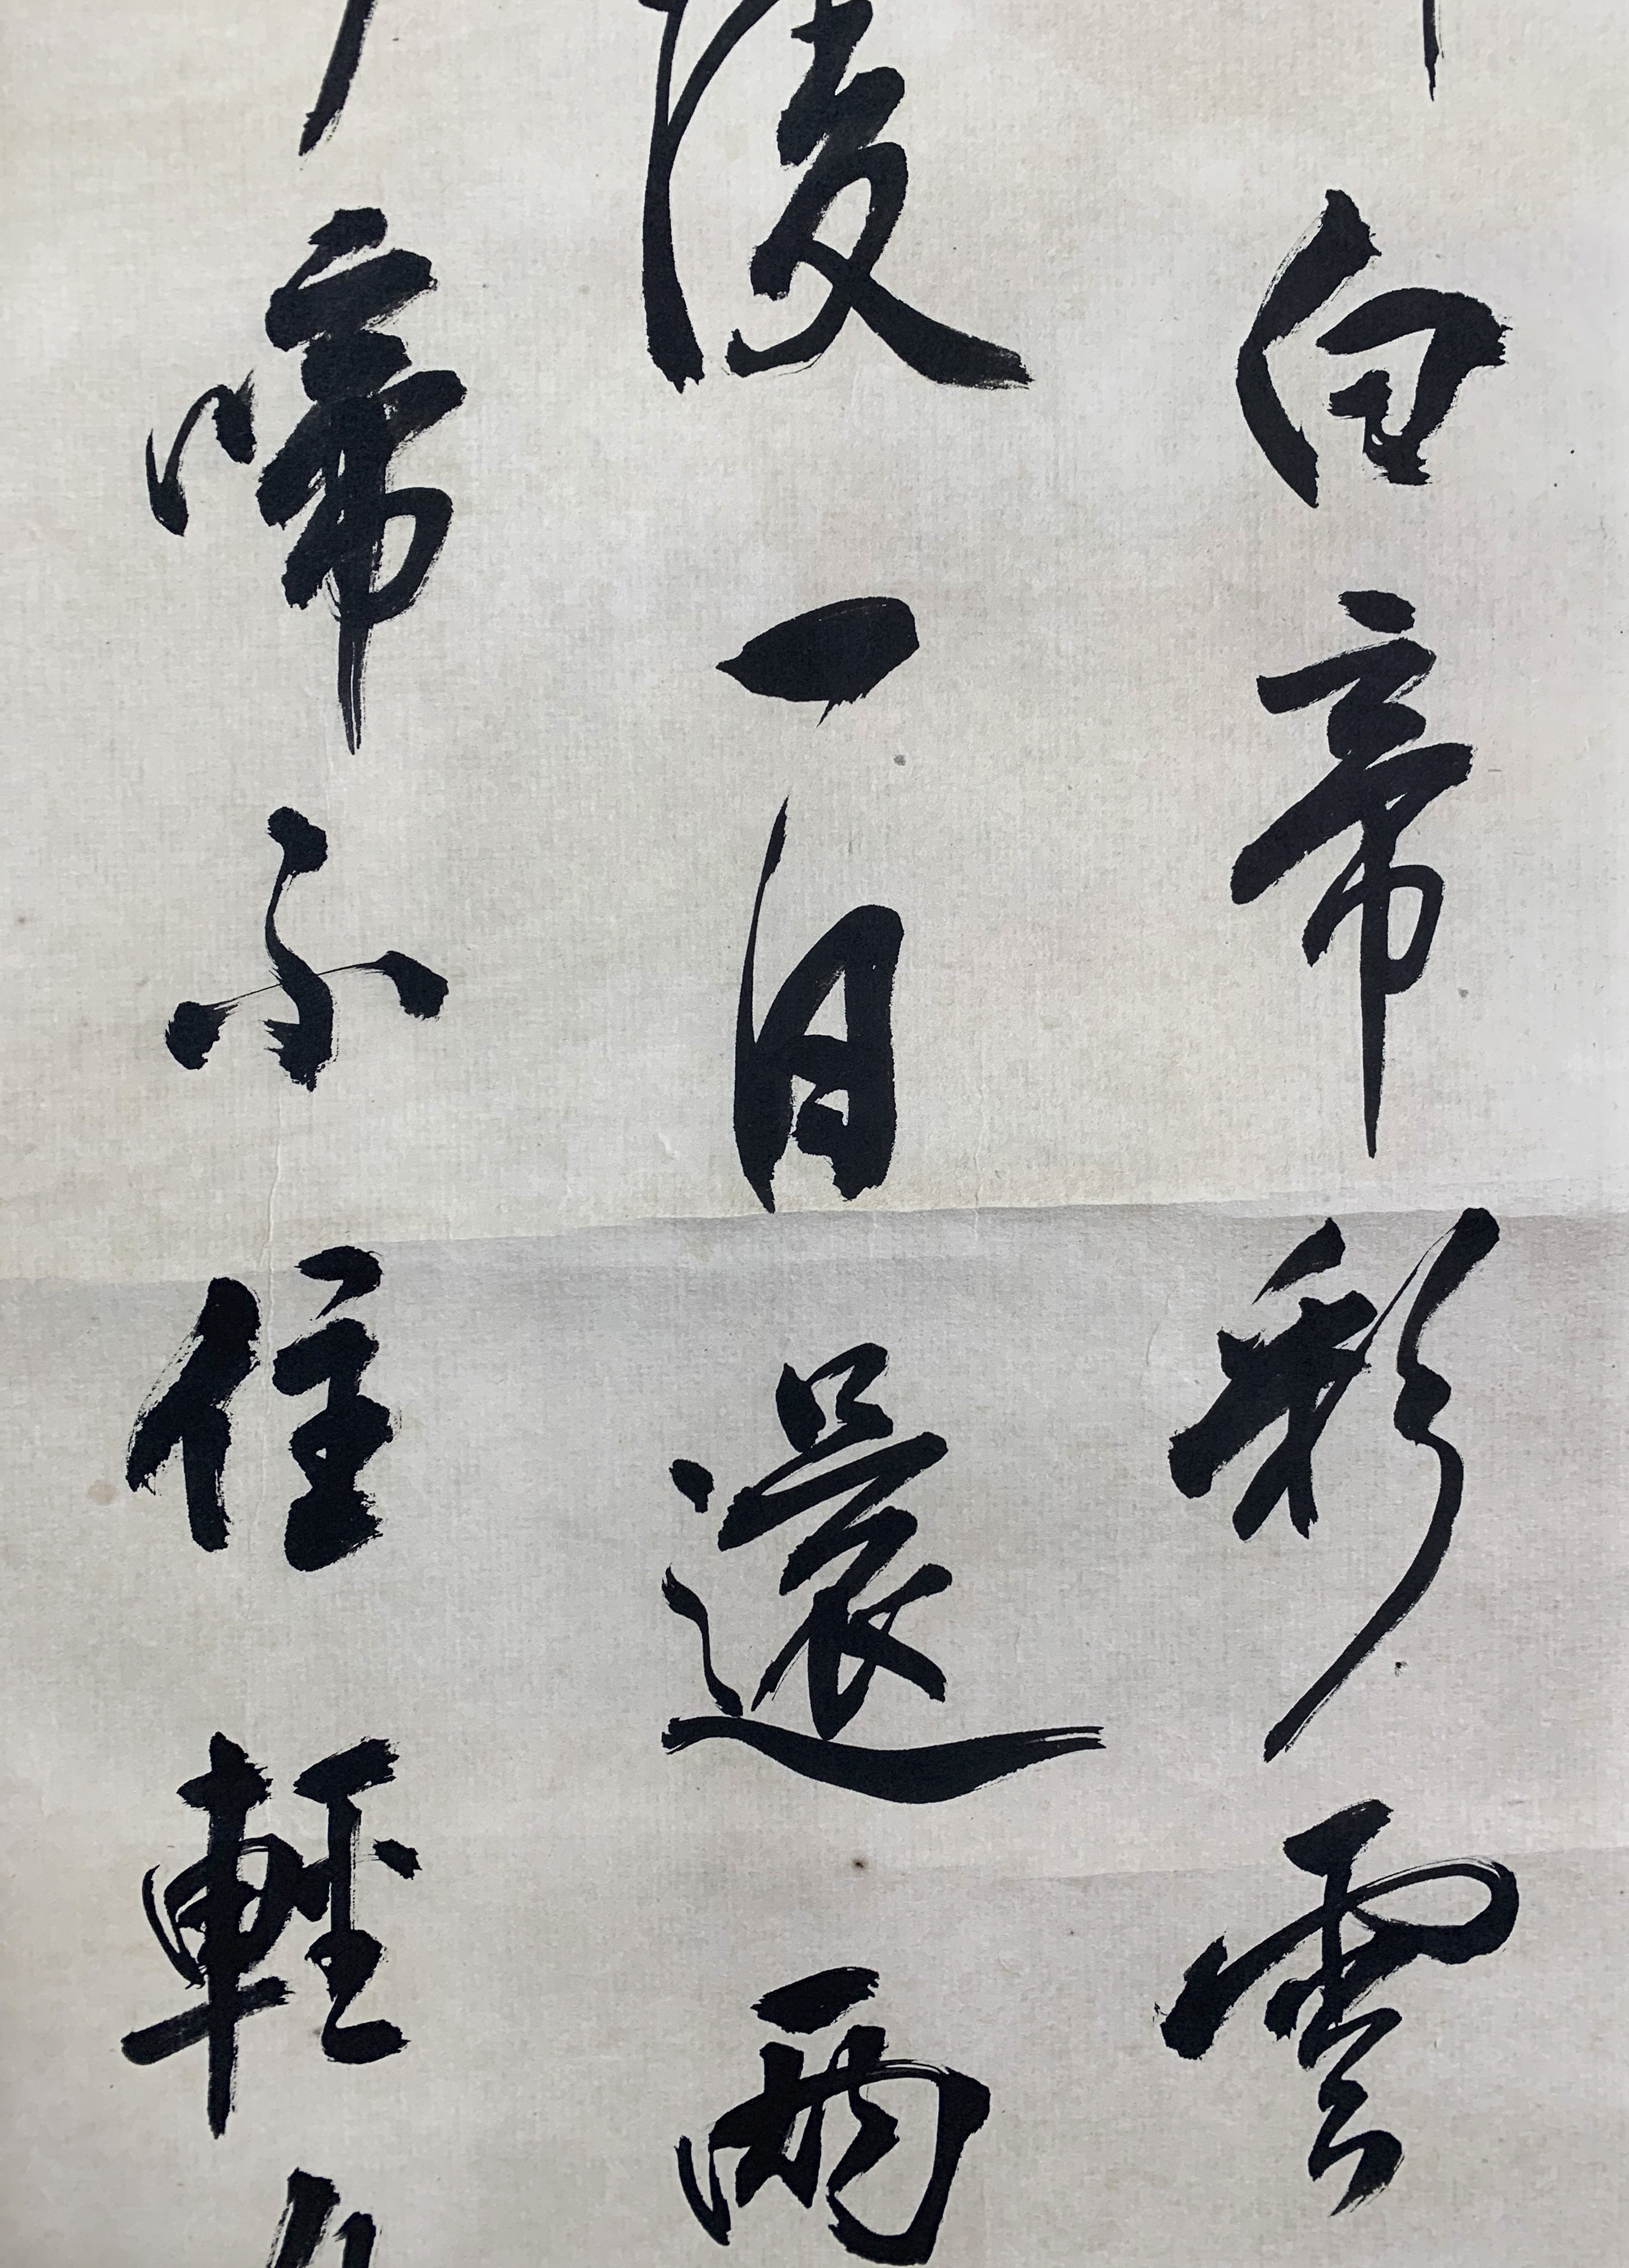 白帝彩雲
陵一日還兩
啼不住輕